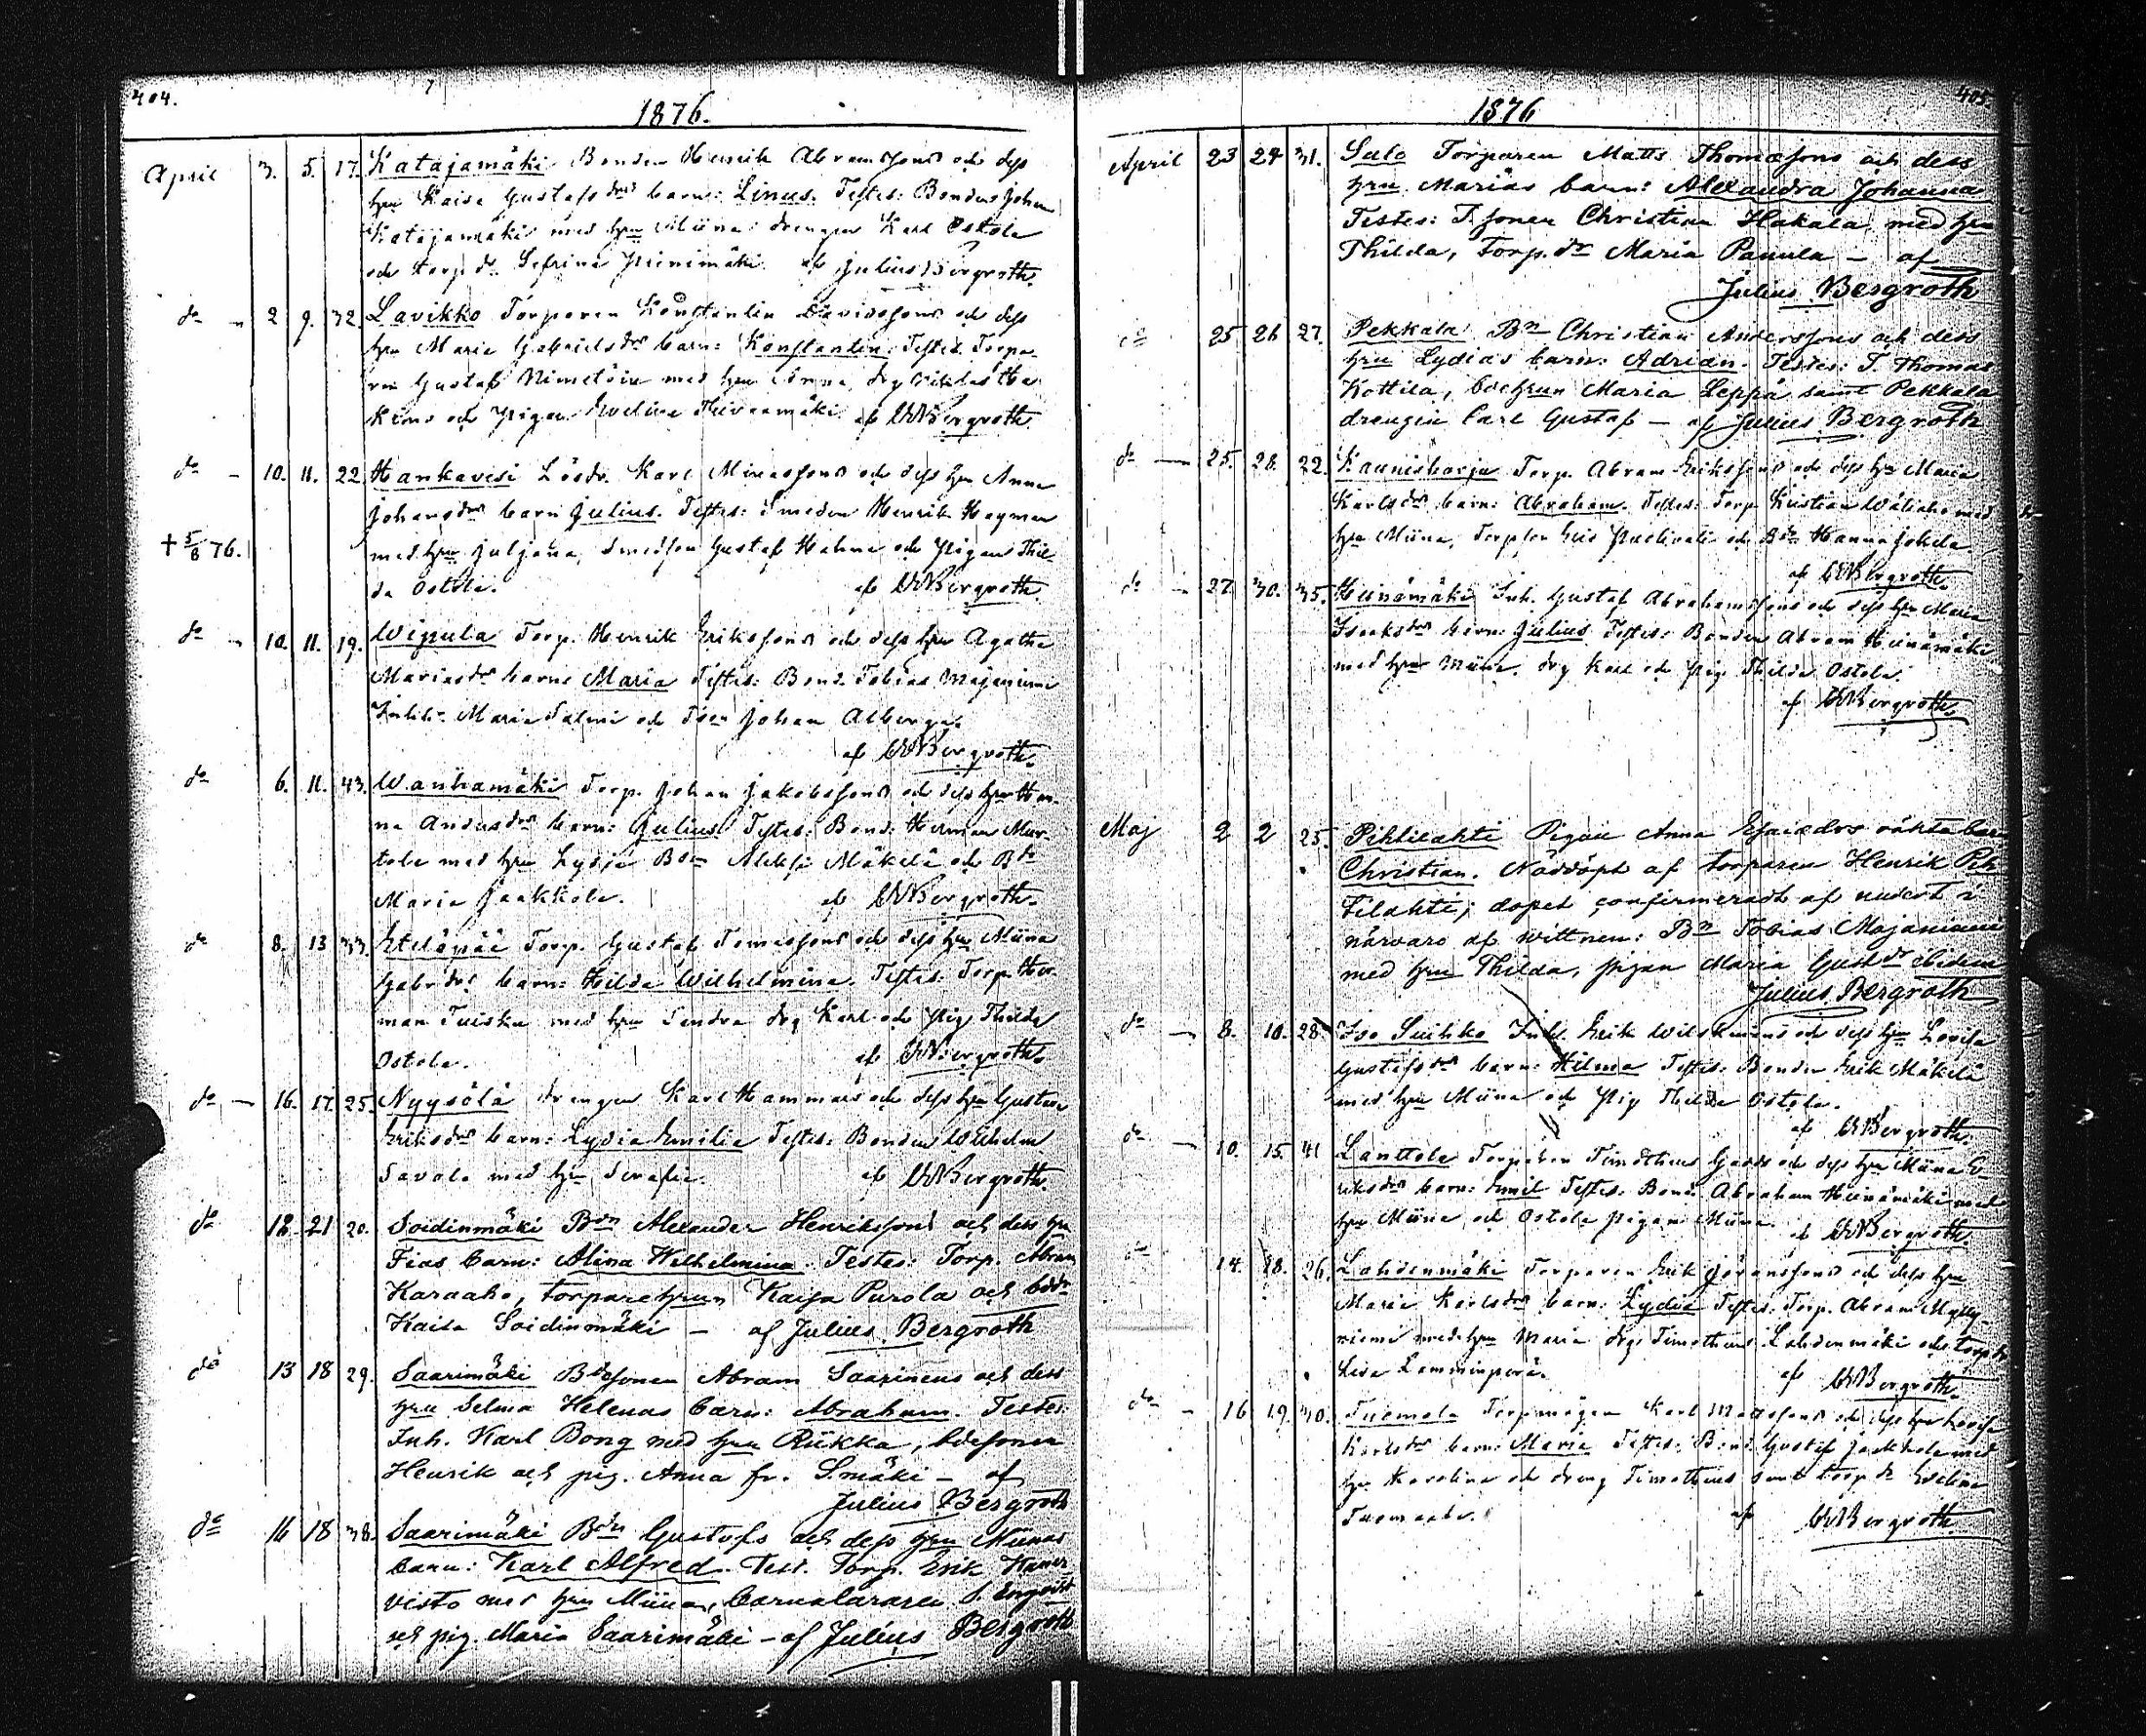 404.
1876.
April 3. 5. 17. Katajamäki Bonden Henrik Abramssons och dess
hru Kaisa Gustafsdrs barn: Linus. Testes: Bonden Johan
Katajamäki med hru Miina: drengen Karl Ostola
och torp.dr Sefrina af Julius Bergroth.
do 2 9. 32. Lavikko Torparen Konstantin Davidssons och dess
hru Maria Gabrielsdrs barn: Konstantin. Testes: Torpa-
ren Gustaf med hru Anna, drg Niklas
och pigan Evelina af Bergroth.
do 10. 11. 22. Hankavesi Lösdr. Karl och dess hru Anna
Johansdrs barn Julius. Testes: Smeden Henrik Hagman
† 5/8 76. med hru Juljana, Smedson Gustaf Hahne och Pigan Thil-
da Ostola. af Bergroth.
do 10. 11. 19. Wipula Torp. Henrik Erikssons och dess hru Agatha
Mariasdr barn: Maria Testes: Bond. Tobias Majaniemi
Maria Salmi och Johan Alberga.
af Bergroth.
do 6. 11. 43. Wanhamäki Torp. Johan Jakobssons och dess hru Han-
na Andersdrs barn: Julius Testes: Bond. Herman Mur-
tola med hru Lydia Aleksi Mäkelä och
Maria Jaakkola. af Bergroth.
do 8. 13 33. Eteläpää Torp. Gustaf Tomassons och dess hru Miina
Gabr.drs barn: Hilda Wilhelmina. Testes: Torp. Her-
man Tuisku med hru Sandra drg Karl och Pig. Thilda
Ostola. af Bergroth.
do 16. 17. 25. Nyysölä drengen Karl Hammars och dess hru Gustava
Eriksdrs barn: Lydia Emilia Testes: Bonden Wilhelm
Savola med hru Serafia. af Bergroth.
do 18. 21 20. Soidinmäki Bdn Alexander Henrikssons och dess hru
Fias barn: Alina Wilhelmina. Testes: Torp. Abram
Karaaho, torparehrun Kaisa Purola och bdr
Kaisa Soidinmäki – af Julius Bergroth
do 13 18 29. Saarimäki Bdesonen Abram Saarinens och dess
hru Selma Helenas barn: Abraham. Testes:
Inh. Karl Bong med hru Riikka, bdesonen
Henrik och pig. Anna fr. Smäki – af
Julius Bergroth
do 16 18 38. Saarimäki Bdn Gustafs och dess hru Miinas
barn: Karl Alfred. Test. Torp. Erik
visto med hru Miina, barnalararen S. Enqvist
och pig. Maria Saarimäki – af Julius Bergroth
405.
1876
April 23 24 31. Salo Torparen Matts Thomassons och dess
hru Marias barn: Alexandra Johanna
Testes: T.sonen Christian Hakala med hru
Thilda, Torp.dr Maria Panula – af
Julius Bergroth
do 25 26 27. Pekkala Bn Christian Anderssons och dess
hru Lydias barn: Adrian. Testes: T. Thomas
Kottila, bdehrun Maria Leppä samt Pekkala
drengen Carl Gustaf – af Julius Bergroth
do 25. 28. 22. Kaunisharju Torp. Abram Erikssons och dess hru Maria
Karlsdrs barn: Abraham. Testes: Torp. Kristian Wäliaho med
hru Miina, Torpson och Hanna Jokela
af Bergroth.
do 27. 30. 35. Heinämäki Inh. Gustaf Abrahamssons och dess hru Maria
Isaksdrs barn: Julius Testes: Bonden Abram Heinämäki
med hru Miina, drg Karl och pig. Thilda Ostola.
af Bergroth.
Maj 2 2 25. Pihlilahti Pigan Anna Esaiædrs oäkta barn
Christian. Nöddöpt af torparen Henrik Pih-
lilahti; dopet confirmeradt af undert. i
närvaro af wittnen: Bn Tobias Majaniemi
med hru Thilda, pigan Maria Gustdr ibidem
Julius Bergroth
do 8. 10. 28. Iso Suihko Inh. Erik Wilskmans och dess hru Lovisa
Gustafsdrs barn: Hilma Testes: Bonden Erik Mäkelä
med hru Miina och Pig Thilda Ostola.
af Bergroth.
do 10. 15. 41 Lanttola Torparen Timotheus och dess hru Miina E-
riksdrs barn: Emil Testes: Bond. Abraham Heinämäki med
hru Miina och Ostola pigan Miina. af Bergroth.
do 14. 18. 26. Lahdenmäki Torparen Erik Göranssons och dess hru
Maria Karlsdrs barn: Lydia Testes: Torp. Abram Mylly-
niemi med hru Maria drg. Timotheus Lahdenmäki och torp.dr
Lisa Lamminperä. af Bergroth.
do 16 19. 30. Tuomola Torpmågen Karl Mattssons och dess hru Lovisa
Karlsdrs barn: Maria Testes: Bond. Gustaf Jaakkola med
hru Karolina och dreng Timotheus samt torp.dr Evelina
af Bergroth.